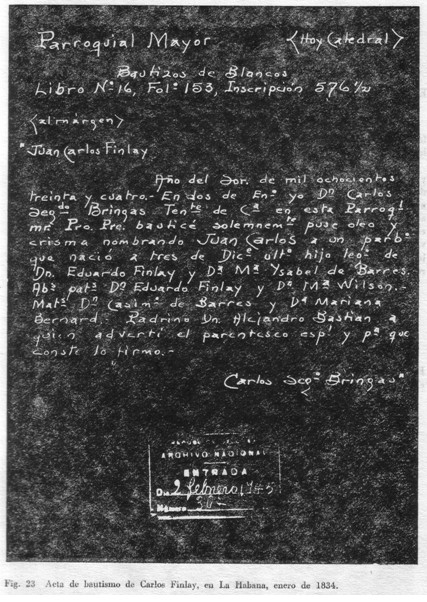 Parroquial Mayor <Hoy Catedral>
Bautizos de Blancos
Libro Nº 16, Folº 153, Inscripción 576 1/2
<al márgen>
"Juan Carlos Finlay
Año del Sor. de mil ochocientos
treinta y cuatro.- En dos de Enº yo Dn Carlos
Segdo Bringas Tente de Ca en esta Parroql
mr. Pro. Pre. bauticé solemnemte puse oleo y
crisma nombrando Juan Carlos a un parbº
que nació a tres de Dice ultº hijo legº de
Dn. Eduardo Finlay y Da Ma Ysabel de Barres.
Abs patº Dn Eduardo Finlay y Da Ma Wilson.-
Matº Dn Casimº de Barres y Da Mariana
Bernard.- Padrino Dn. Alejandro Bastian a
quien advertí el parentesco espl y pa que
conste lo firmo.-
Carlos Segdo Bringas"
ARCHIVO NACIONAL
ENTRADA
Día 2 febrero 1945
Número
Fig. 23 Acta de bautismo de Carlos Finlay, en La Habana, enero de 1834.